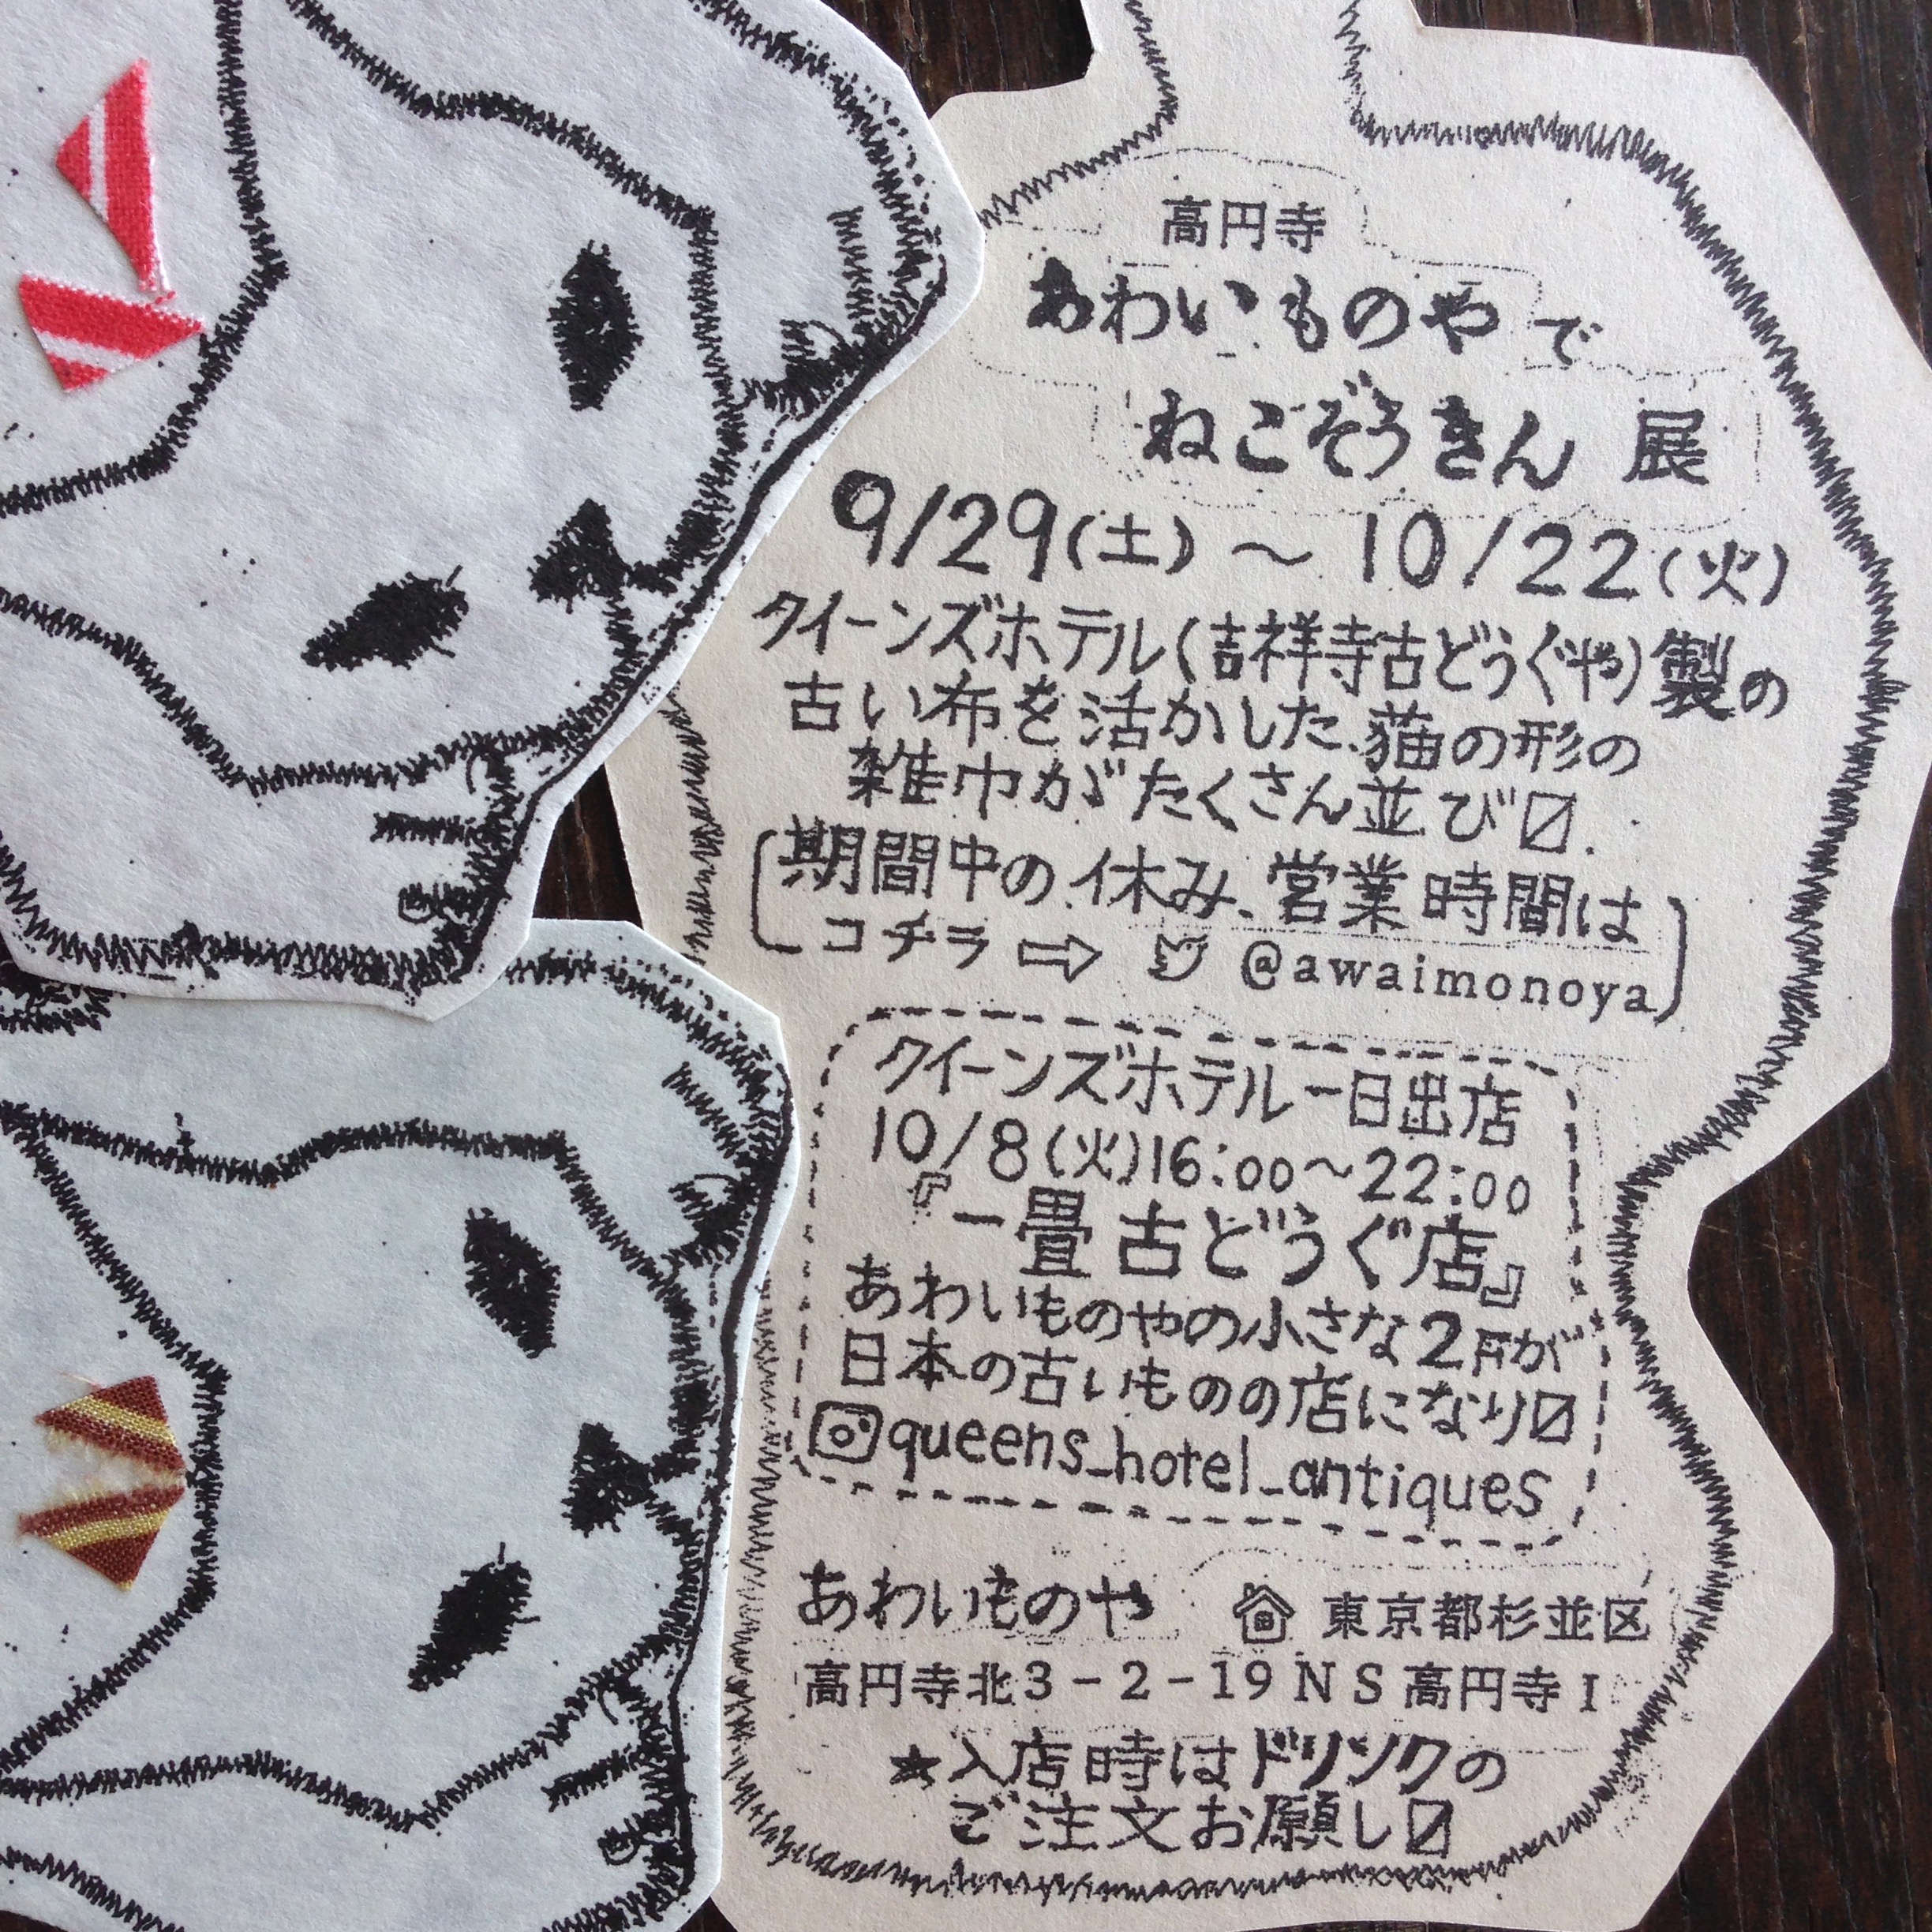 高円寺
あわいものやで
ねこぞうきん 展
9/29(土)〜10/22(火)
クイーンズホテル(吉祥寺古どうぐや)製の
古い布を活かした、猫の形の
雑巾がたくさん並び〼.
期間中の休み、営業時間は
コチラ⇨ @awaimonoya
クイーンズホテル一日出店
10/8(火)16:00〜22:00
『一畳古どうぐ店』
あわいものやの小さな2Fが
日本の古いものの店になり〼
queens_hotel_antiques
あわいものや 東京都杉並区
高円寺北3-2-19NS高円寺I
★入店時はドリンクの
ご注文お願いし〼